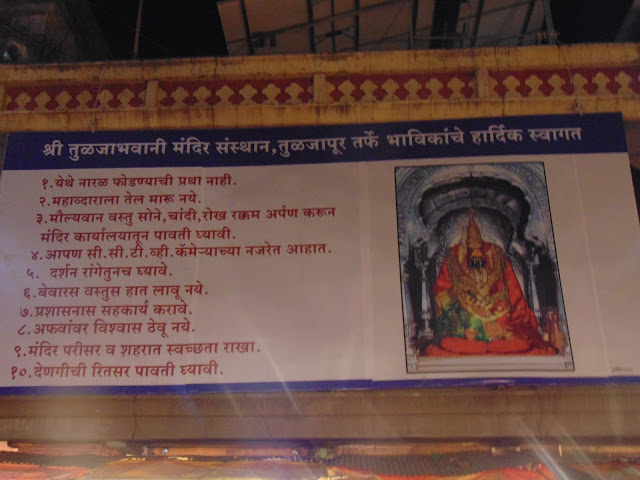 श्री तुळजाभवानी मंदिर संस्थान,तुळजापूर तर्फे भाविकांचे हार्दिक स्वागत
१.येथे नारळ फोडण्याची प्रथा नाही.
२.महाव्दाराला तेल मारू नये.
३.मौल्यवान वस्तु सोने,चांदी,रोख रक्कम अर्पण करून
मंदिर कार्यालयातून पावती घ्यावी.
४.आपण सी.सी.टी.व्ही.कॅमेऱ्याच्या नजरेत आहात.
५. दर्शन रांगेतुनच घ्यावे.
६.बेवारस वस्तुस हात लावू नये.
७.प्रशासनास सहकार्य करावे.
८.अफवांवर विश्वास ठेवू नये.
९.मंदिर परीसर व शहरात स्वच्छता राखा.
१०.देणगीची रितसर पावती घ्यावी.